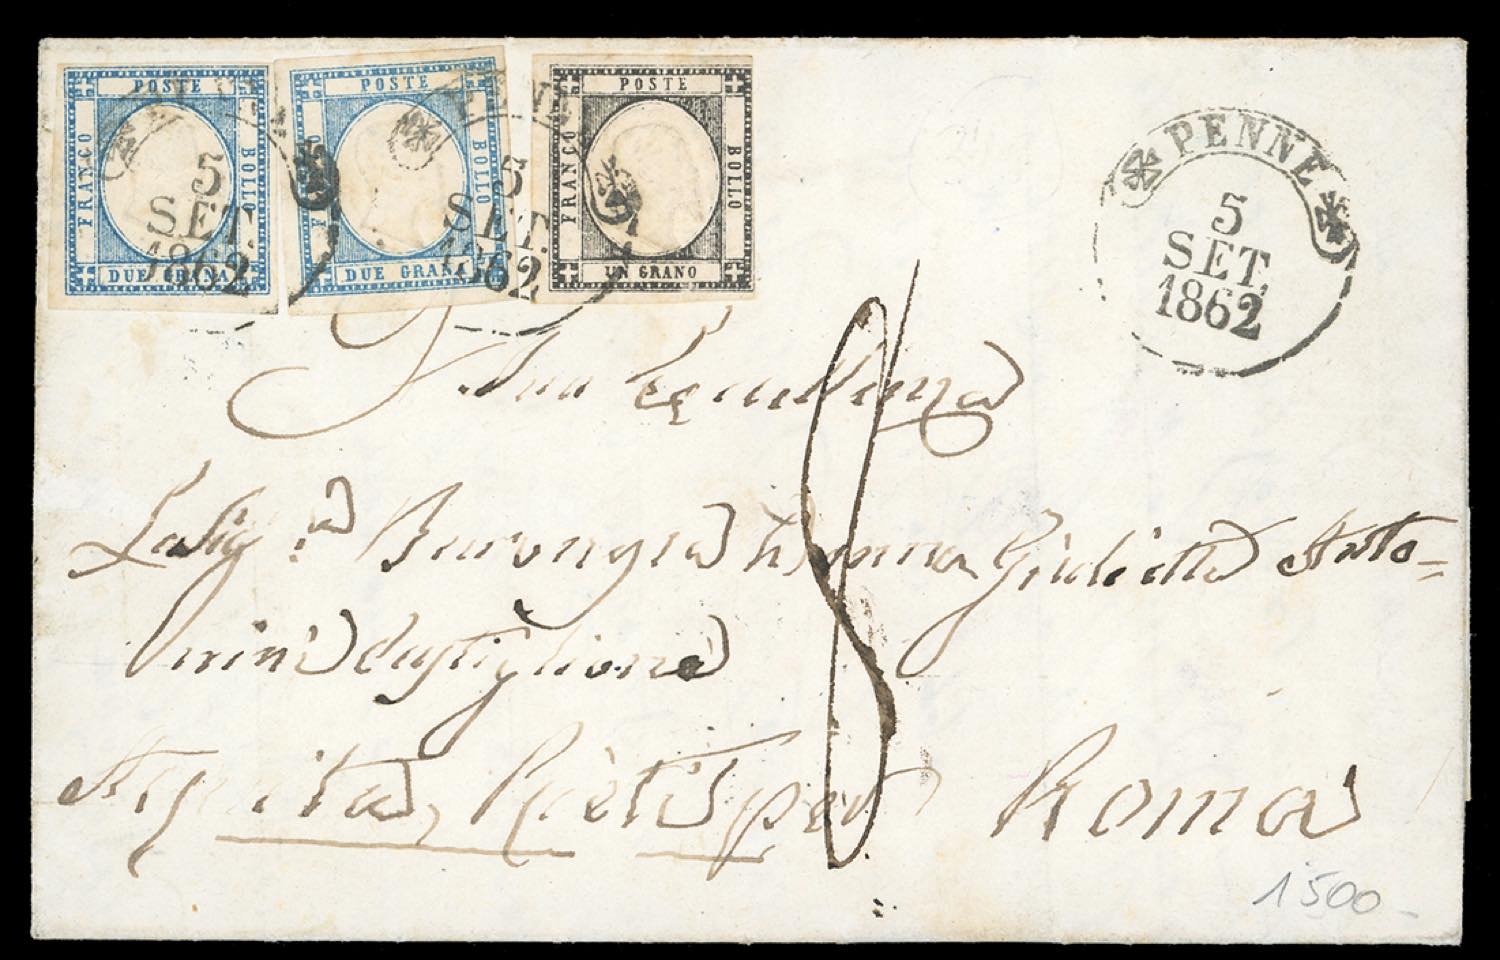 POSTE
FRANCO
BOLLO
DUE GRANA
5
SET.
1862
POSTE
BOLLO
DUE GRANA
5
SET.
1862
POSTE
FRANCO
BOLLO
UN GRANO
PENNE
5
SET.
1862
8
Sua Eccellenza
La Sig.ra Giulietta Anto=
nini Castiglione
Rieti per Roma
1500